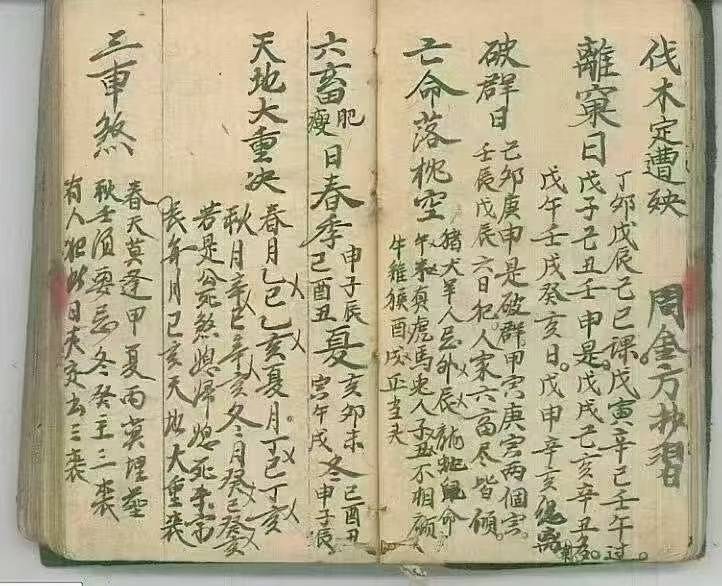 伐木定遭殃
周金方抄習
離窠日
丁卯戊辰己巳課戊寅辛巳壬午過
戊子己丑壬申是戊戌己亥辛丑多
戊午壬戌癸亥日戊申辛亥
破群日
己卯庚申是破群甲寅庚寅兩個寅
壬辰戊辰六日犯人家六畜尽皆傾
亡命落枕空
猪犬羊人忌卯辰龍蛇鼠命
午未寅虎馬 人子丑不相顧
牛雞猴酉戌正当
六畜肥瘦日
春季申子辰巳酉丑
夏亥卯未寅午戌
冬巳酉丑申子辰
天地大重决
春月乙巳乙亥夏月丁巳丁亥
秋月辛巳辛亥冬月癸巳癸亥
若是公死煞媳婦媳死
長年月己亥天地大重喪
三車煞
春天莫逢甲夏丙莫埋墓
秋壬須要忌冬癸主三喪
有人犯此日 去三喪